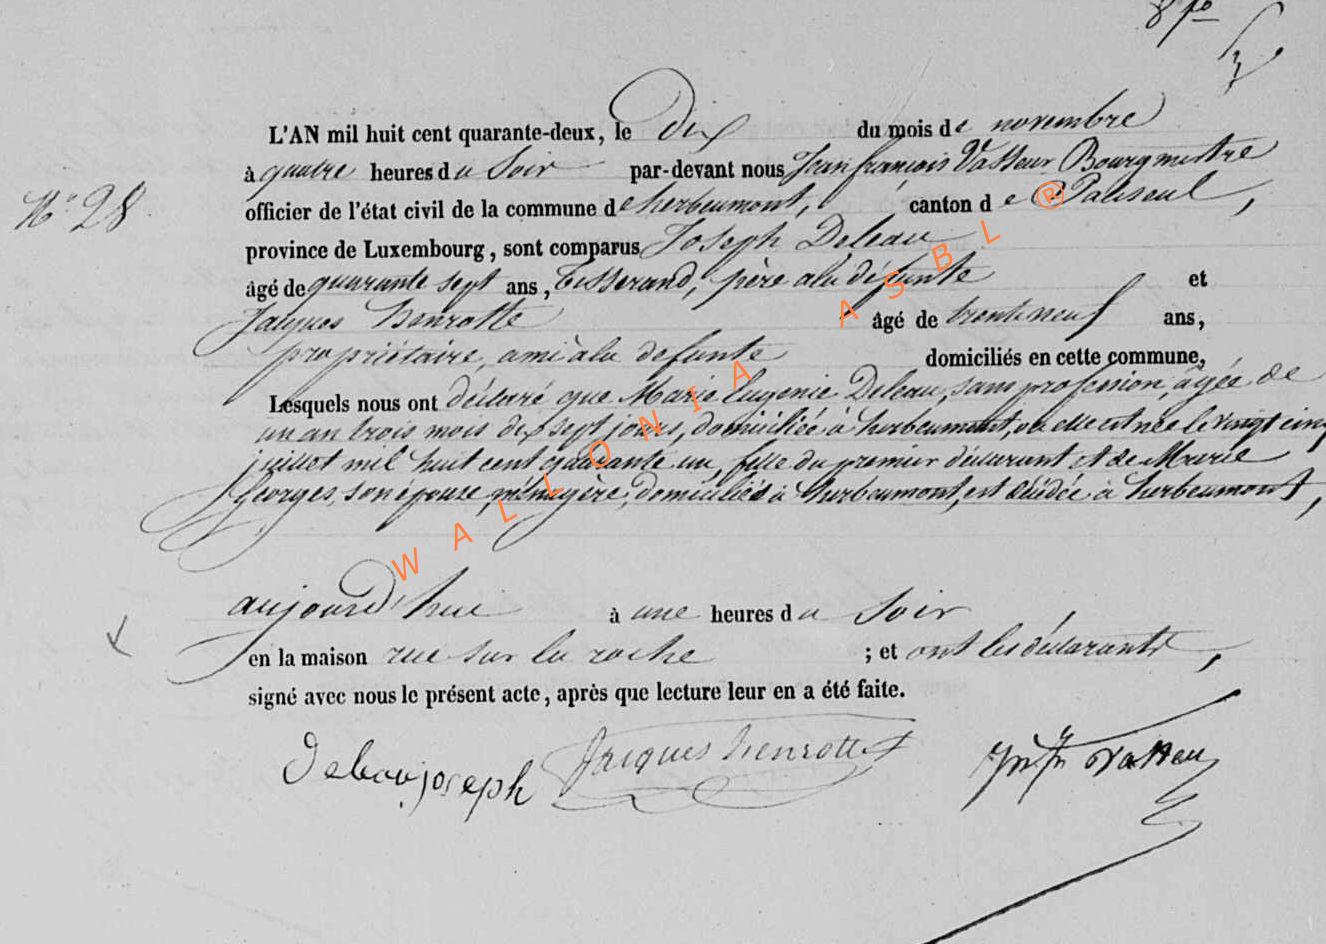 8 fo
L'AN mil huit cent quarante-deux, le Dix du mois de novembre
à quatre heures du Soir par-devant nous Jean françois Vasseur Bourgmestre
N° 28
officier de l'état civil de la commune de herbeumont, canton de Paliseul,
province de Luxembourg, sont comparus Joseph Deleau
âgé de quarante sept ans, Tisserand, père à la défunte et
Jacques Henrotte âgé de trente neuf ans,
propriétaire, ami à la defunte domiciliés en cette commune,
Lesquels nous ont déclaré que Marie Eugenie Deleau, sans profession, âgée de
un an trois mois dix sept jours, domiciliée à herbeumont, où elle est née le vingt cinq
juillet mil huit cent quarante un, fille du premier déclarant et de Marie
Georges, son épouse, ménagère, domiciliés à herbeumont, est décédée à herbeumont,
aujourd'hui à une heures du Soir
en la maison rue sur la roche ; et ont les déclarants,
signé avec nous le présent acte, après que lecture leur en a été faite.
Deleau joseph Jacques henrotte Vasseur
WALLONIA ASBL ®